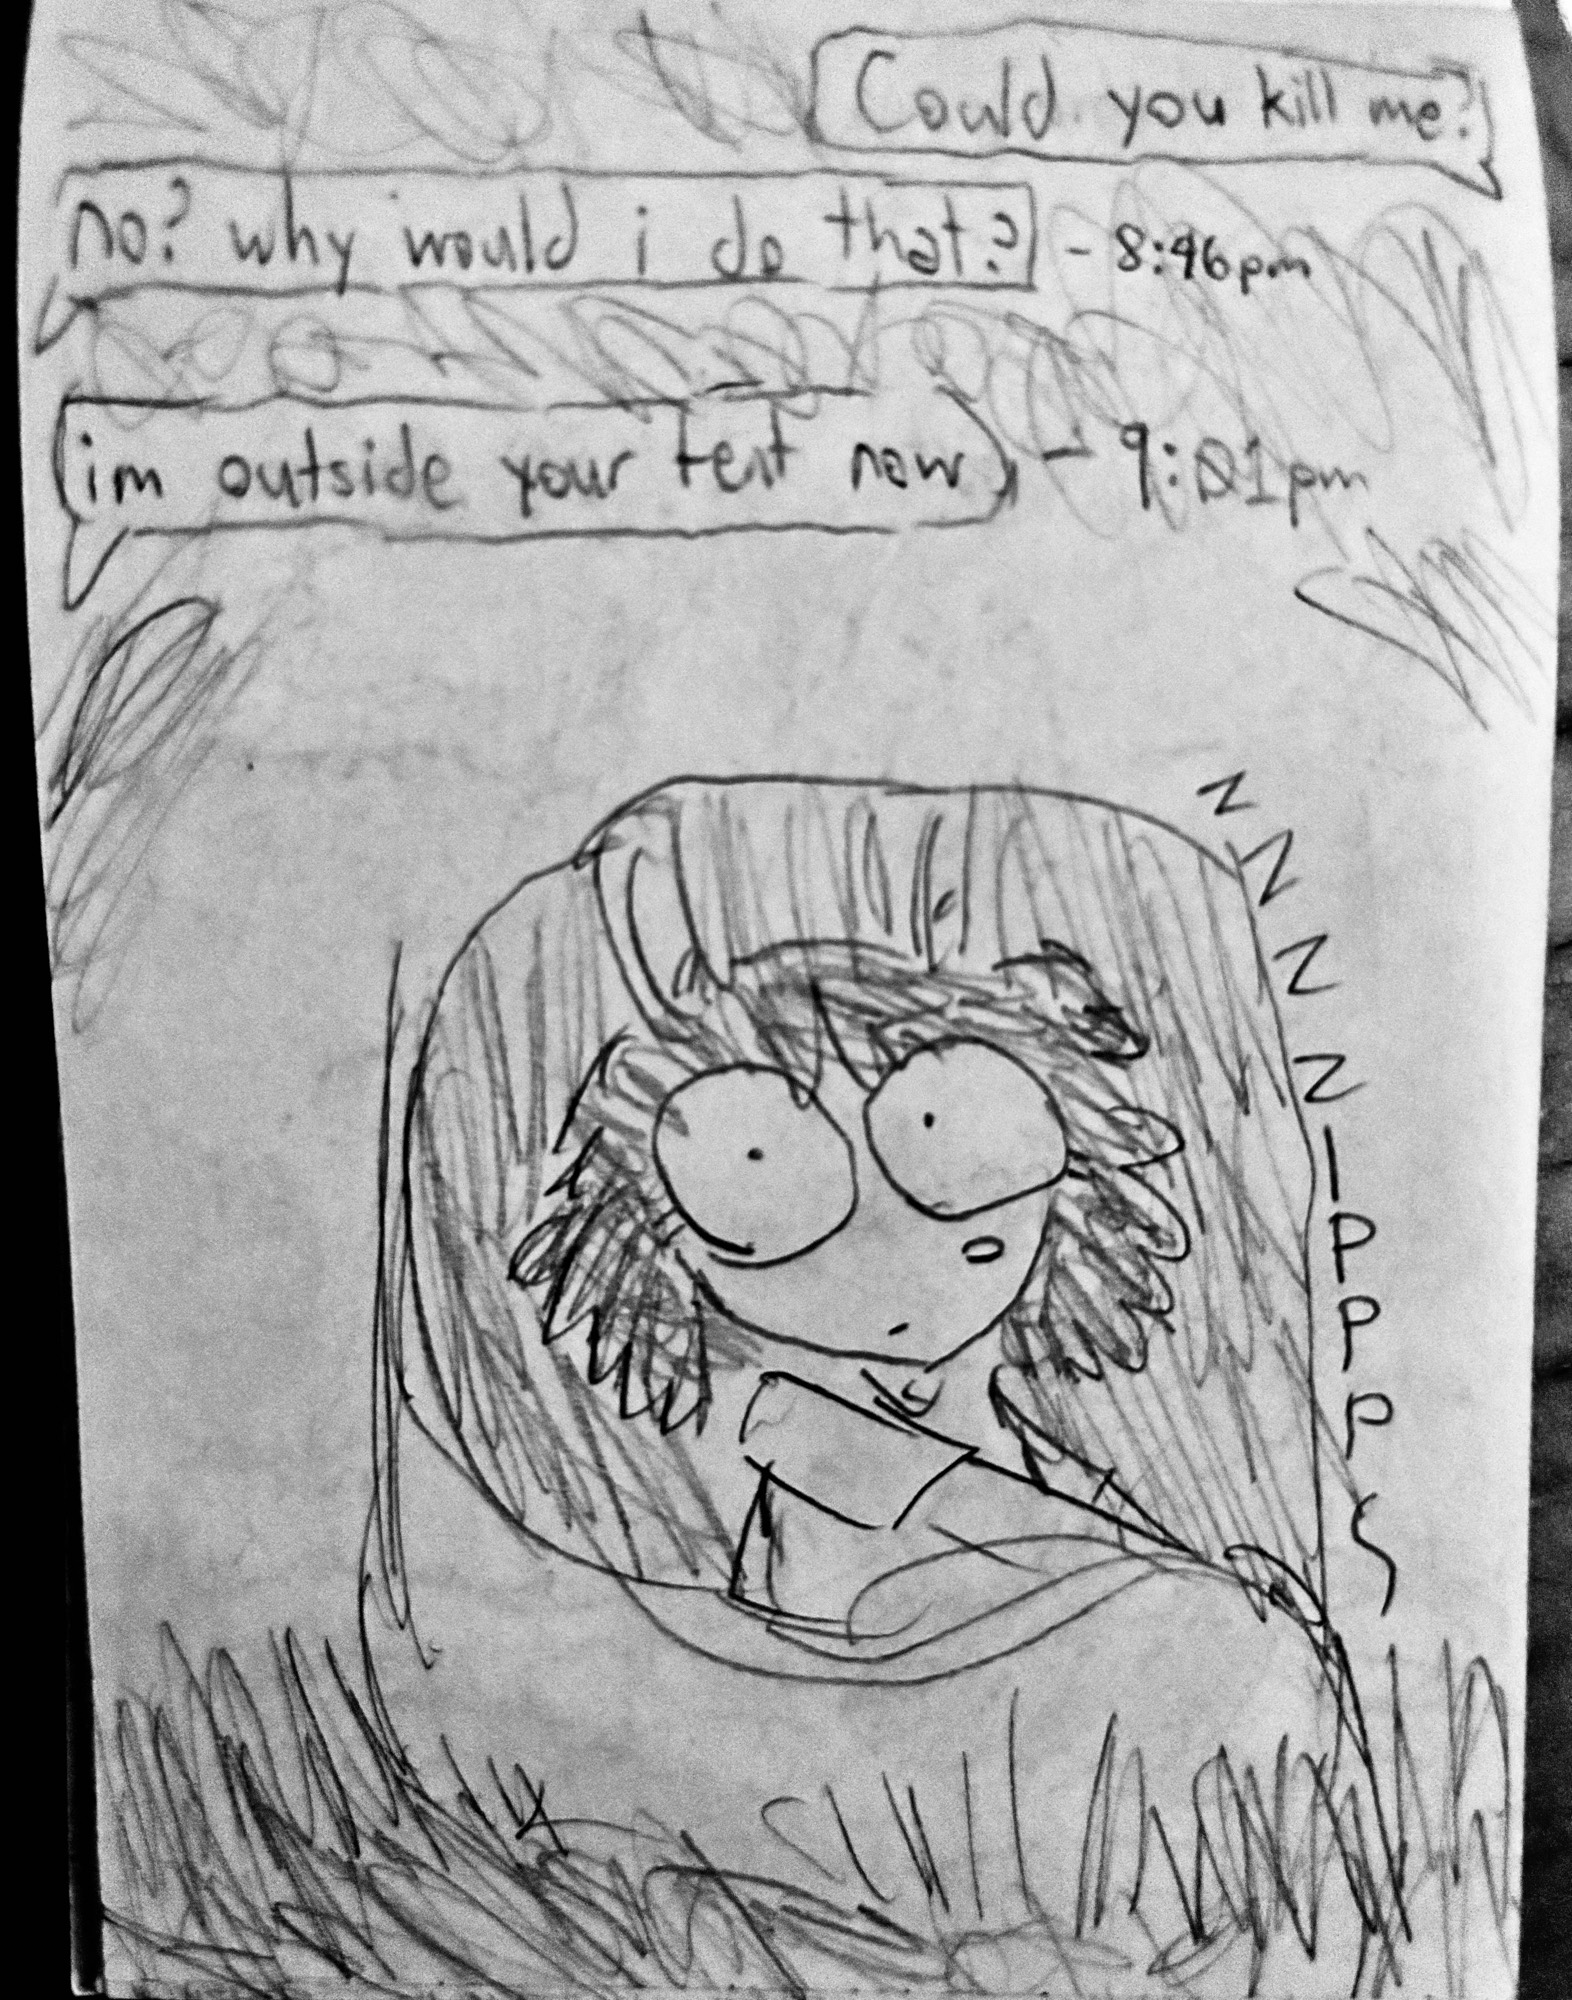 Could you kill me?
no? why would i do that? - 8:46pm
im outside your tent now - 9:01pm
ZZZZIPPPS